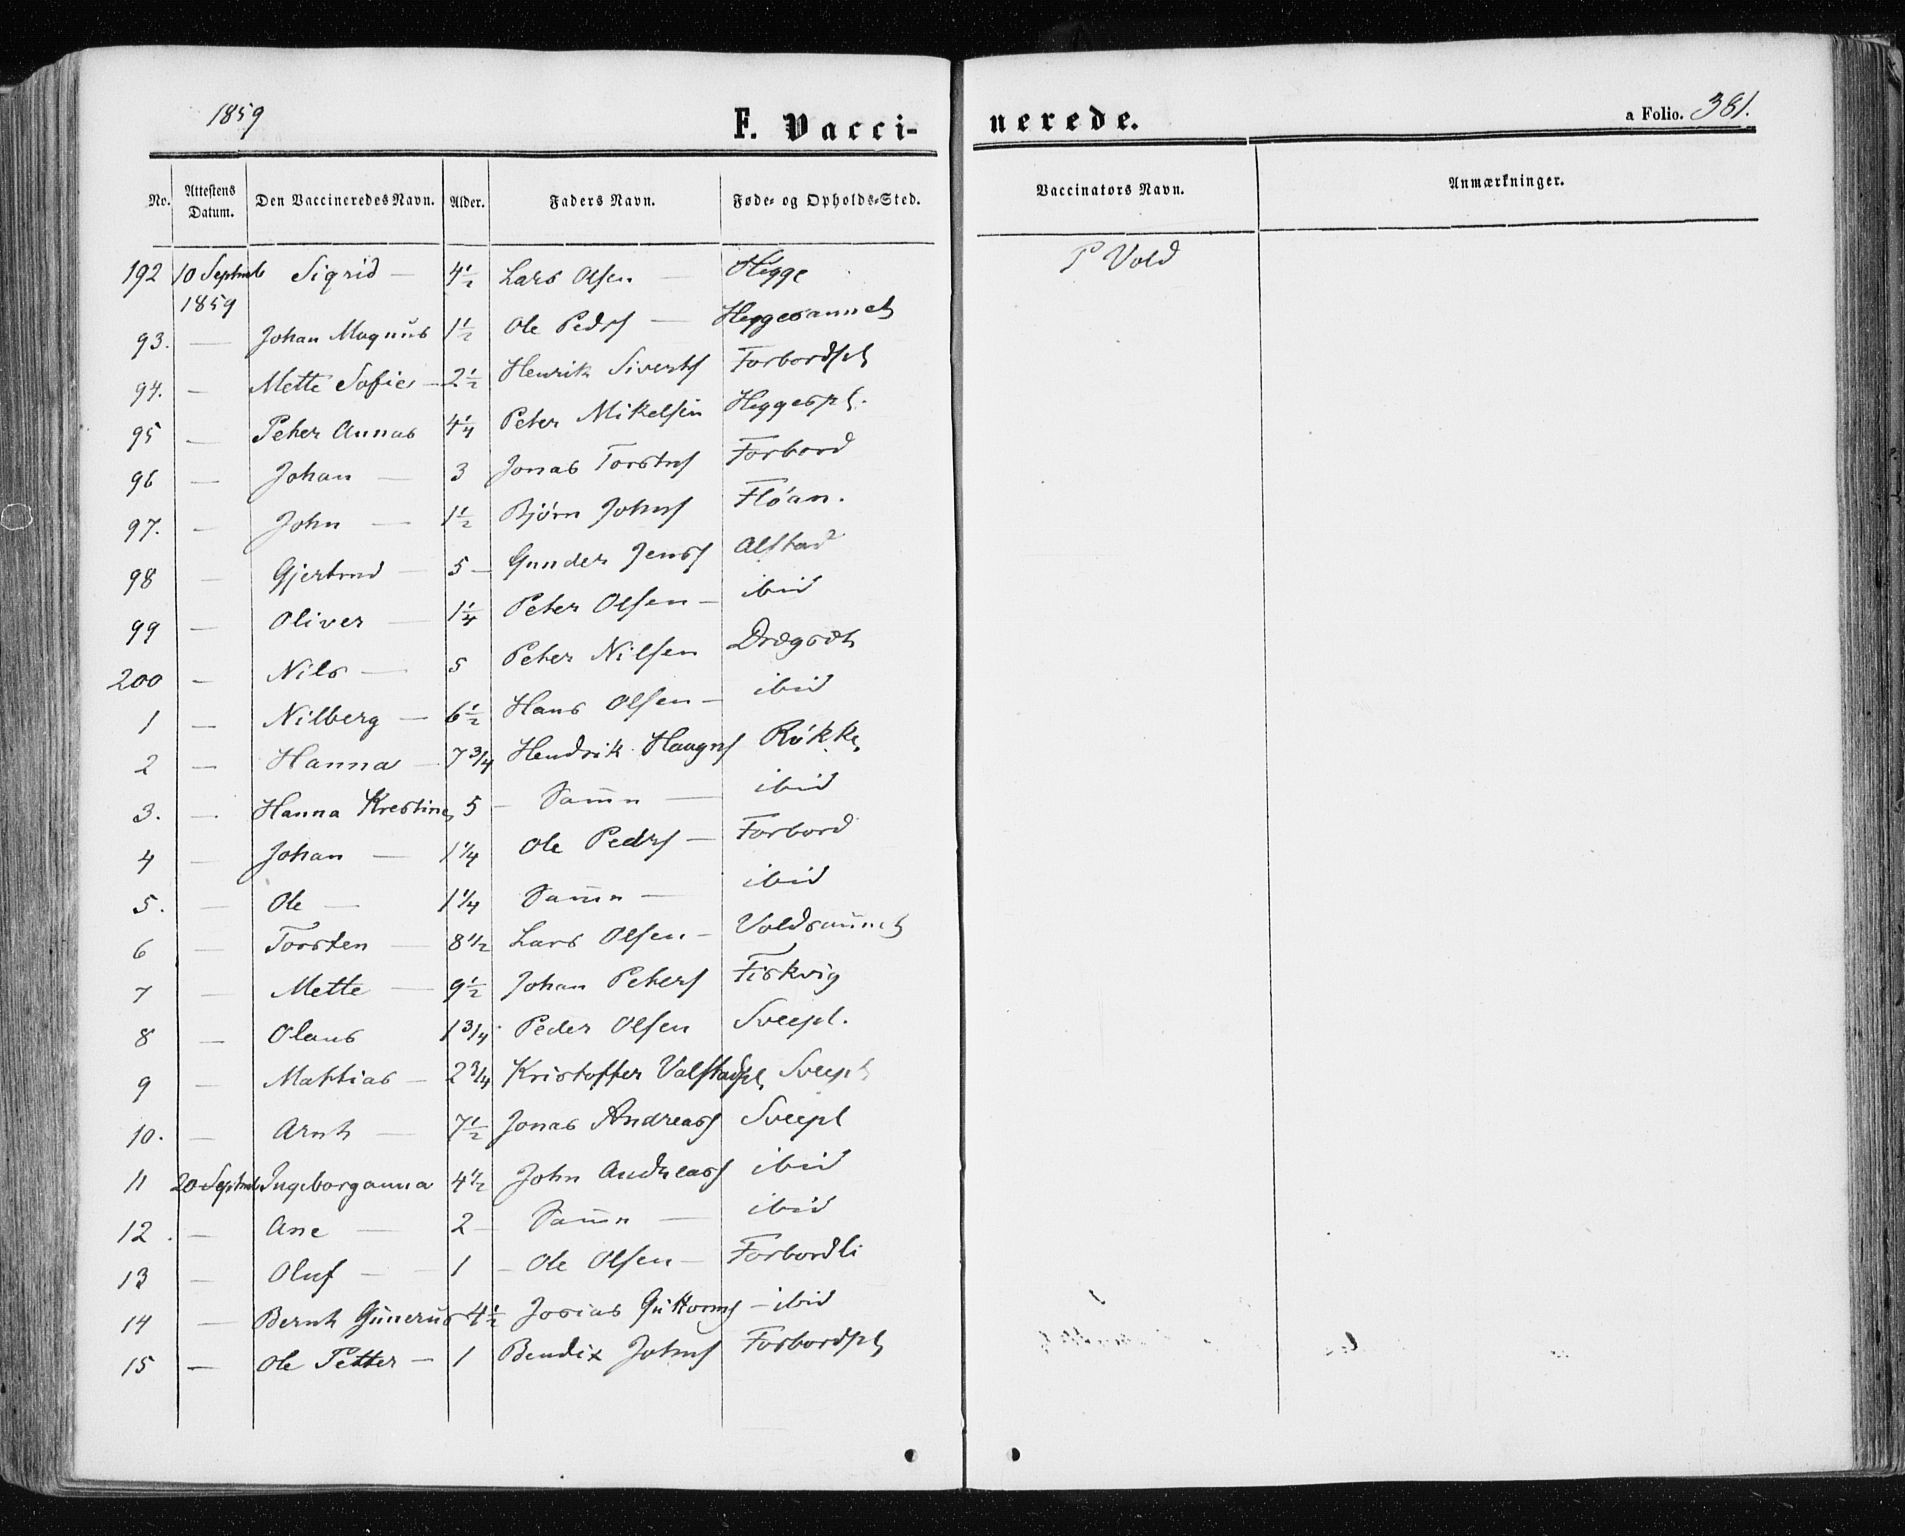 1859 F. Vacci- nerede. a Folio. 381.
No. Attestens Datum. Den Vaccineredes Navn. Alder. Faders Navn. Føde- og Opholds-Sted. Vaccinators Navn. Anmærkninger.
192 10 Septmb Sigrid — 4½ Lars Olsen — Hegge P Vold
1859
93. — Johan Magnus 1½ Ole Peds — Heggesaunet
94. — Mette Sofie — 2½ Henrik Siverts Forbordspl
95 — Peter Annas 4¼ Peter Mikelsen Heggespl.
96 — Johan — 3 Jonas Torstns Forbord
97. — John — 1½ Bjørn Johns Fløan.
98 — Gjertrud — 5 — Gunder Jens Alstad
99 — Oliver — 1¼ Peter Olsen — ibid
200 — Nils — 5 Peter Nilsen Drogset
1 — Nilberg — 6½ Hans Olsen — ibid
2 — Hanna — 7 3/4 Hendrik Haagns Røkke
3. — Hanna Krestine 5 — Samn — ibid
4 — Johan — 1 1/4 Ole Peders — Forbord
5. — Ole — 1 1/4 Samn — ibid
6 — Torsten — 8 1/2 Lars Olsen — Voldsaunet
7 — Mette — 9½ Johan Peters Fiskvig
8 — Olaus 1 3/4 Peder Olsen Sveepl.
9 — Mattias — 2 3/4 Kristoffer Valstadpl Sveepl
10. — Arnt — 7½ Jonas Andreass Sveepl
11 20 Septmb Ingeborganna 4½ John Andreass ibid
12. — Ane — 2 — Samn — ibid
13 — Oluf — 1 — Ole Olsen — Forbordli
14 — Bernt Gunerus 4½ Josias Guttorms — ibid
15 — Ole Petter — 1 Bendix Johns Forbordspl